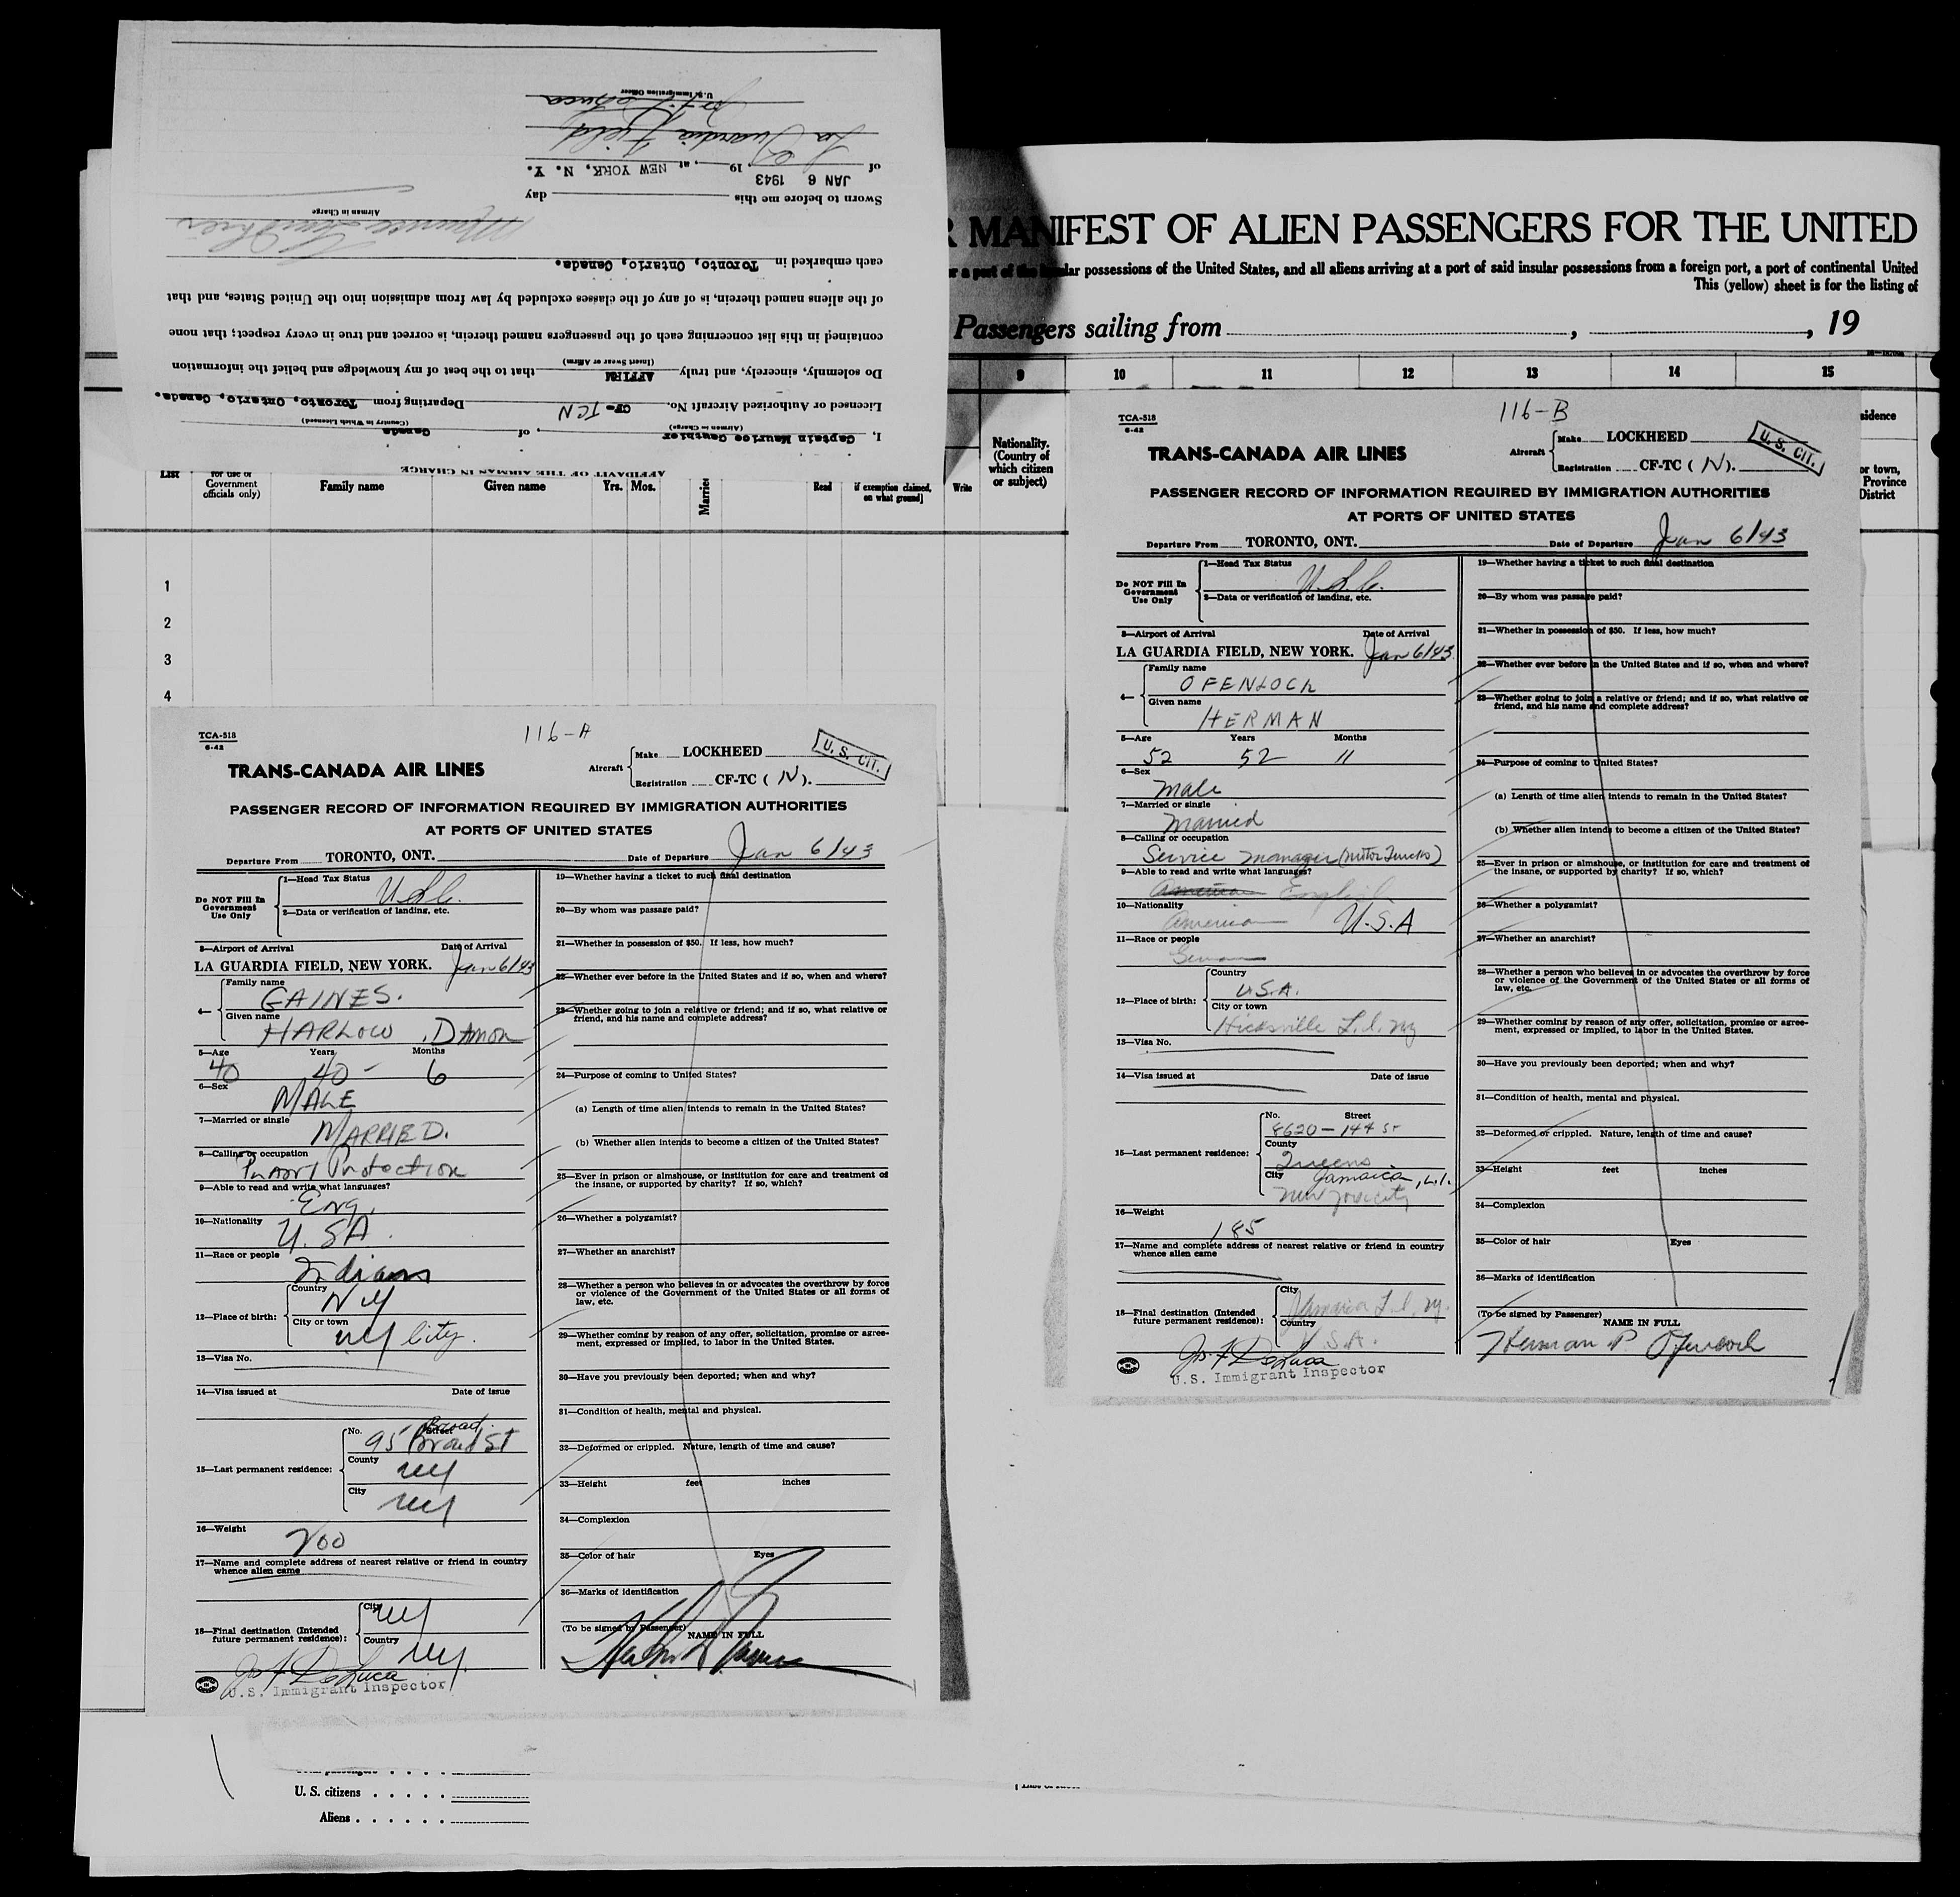 AFFIDAVIT OF THE AIRMAN IN CHARGE
I, Captain Maurice Gauthier, of Canada
(Airman in Charge) (Country in Which Licensed)
Licensed or Authorized Aircraft No. CF-TCN Departing from Toronto, Ontario, Canada.
Do solemnly, sincerely, and truly AFFIRM that to the best of my knowledge and belief the information
(Insert Swear or Affirm)
contained in this list concerning each of the passengers named therein, is correct and true in every respect; that none
of the aliens named therein, is of any of the classes excluded by law from admission into the United States, and that
each embarked in Toronto, Ontario, Canada.
Airman in Charge
Sworn to before me this day
JAN 6 1943
of , 19 , at NEW YORK, N. Y.
La Guardia Field
U. S. Immigration Officer
R MANIFEST OF ALIEN PASSENGERS FOR THE UNITED
lar possessions of the United States, and all aliens arriving at a port of said insular possessions from a foreign port, a port of continental United
This (yellow) sheet is for the listing of
Passengers sailing from , , 19
9 10 11 12 13 14 15
List
for use of
Government
officials only)
Family name Given name Yrs. Mos. Married Read if exemption claimed,
on what ground] Write
Nationality.
(Country of
which citizen
or subject)
sidence
or town,
Province
District
1
2
3
4
116-A
TCA-518
6-42
TRANS-CANADA AIR LINES
Aircraft Make LOCKHEED
Registration CF-TC (N).
U. S. CIT.
PASSENGER RECORD OF INFORMATION REQUIRED BY IMMIGRATION AUTHORITIES
AT PORTS OF UNITED STATES
Departure From TORONTO, ONT. Date of Departure Jan 6/43
Do NOT Fill In
Government
Use Only
1—Head Tax Status U.S.C.
2—Data or verification of landing, etc.
3—Airport of Arrival Date of Arrival
LA GUARDIA FIELD, NEW YORK. Jan 6/43
4— Family name
GAINES.
Given name
HARLOW, DAMON
5—Age Years Months
40 40 - 6
6—Sex
MALE
7—Married or single
MARRIED.
8—Calling or occupation
Plant Protection
9—Able to read and write what languages?
Eng.
10—Nationality
U.SA.
11—Race or people
Indiana
12—Place of birth: Country
NY
City or town
NY City.
13—Visa No.
14—Visa issued at Date of issue
15—Last permanent residence: No. Street
Broad
95 Broad St
County
NY
City
NY
16—Weight
200
17—Name and complete address of nearest relative or friend in country
whence alien came
18—Final destination (Intended
future permanent residence): City
NY
Country
NY.
Jos F DeLuca
U.S. Immigrant Inspector
19—Whether having a ticket to such final destination
20—By whom was passage paid?
21—Whether in possession of $50. If less, how much?
22—Whether ever before in the United States and if so, when and where?
23—Whether going to join a relative or friend; and if so, what relative or
friend, and his name and complete address?
24—Purpose of coming to United States?
(a) Length of time alien intends to remain in the United States?
(b) Whether alien intends to become a citizen of the United States?
25—Ever in prison or almshouse, or institution for care and treatment of
the insane, or supported by charity? If so, which?
26—Whether a polygamist?
27—Whether an anarchist?
28—Whether a person who believes in or advocates the overthrow by force
or violence of the Government of the United States or all forms of
law, etc.
29—Whether coming by reason of any offer, solicitation, promise or agree-
ment, expressed or implied, to labor in the United States.
30—Have you previously been deported; when and why?
31—Condition of health, mental and physical.
32—Deformed or crippled. Nature, length of time and cause?
33—Height feet inches
34—Complexion
35—Color of hair Eyes
36—Marks of identification
(To be signed by Passenger) NAME IN FULL
116-B
TCA-518
6-42
TRANS-CANADA AIR LINES
Aircraft Make LOCKHEED
Registration CF-TC (N).
U. S. CIT.
PASSENGER RECORD OF INFORMATION REQUIRED BY IMMIGRATION AUTHORITIES
AT PORTS OF UNITED STATES
Departure From TORONTO, ONT. Date of Departure Jan 6/43
Do NOT Fill In
Government
Use Only
1—Head Tax Status U.S.C.
2—Data or verification of landing, etc.
3—Airport of Arrival Date of Arrival
LA GUARDIA FIELD, NEW YORK. Jan 6/43
4— Family name
OFENLOCH
Given name
HERMAN
5—Age Years Months
52 52 11
6—Sex
Male
7—Married or single
Married
8—Calling or occupation
Service Manager (Motor Trucks)
9—Able to read and write what languages?
American English
10—Nationality
American U.S.A
11—Race or people
German
12—Place of birth: Country
U.S.A.
City or town
Hicksville L.I. NY
13—Visa No.
14—Visa issued at Date of issue
15—Last permanent residence: No. Street
8620-144 St
County
Queens
City Jamaica, L.I.
New York City
16—Weight
185
17—Name and complete address of nearest relative or friend in country
whence alien came
18—Final destination (Intended
future permanent residence): City
Jamaica L.I. NY.
Country
U.S.A.
Jos F DeLuca
U.S. Immigrant Inspector
19—Whether having a ticket to such final destination
20—By whom was passage paid?
21—Whether in possession of $50. If less, how much?
22—Whether ever before in the United States and if so, when and where?
23—Whether going to join a relative or friend; and if so, what relative or
friend, and his name and complete address?
24—Purpose of coming to United States?
(a) Length of time alien intends to remain in the United States?
(b) Whether alien intends to become a citizen of the United States?
25—Ever in prison or almshouse, or institution for care and treatment of
the insane, or supported by charity? If so, which?
26—Whether a polygamist?
27—Whether an anarchist?
28—Whether a person who believes in or advocates the overthrow by force
or violence of the Government of the United States or all forms of
law, etc.
29—Whether coming by reason of any offer, solicitation, promise or agree-
ment, expressed or implied, to labor in the United States.
30—Have you previously been deported; when and why?
31—Condition of health, mental and physical.
32—Deformed or crippled. Nature, length of time and cause?
33—Height feet inches
34—Complexion
35—Color of hair Eyes
36—Marks of identification
(To be signed by Passenger) NAME IN FULL
Herman P. Ofenloch
U. S. citizens
Aliens